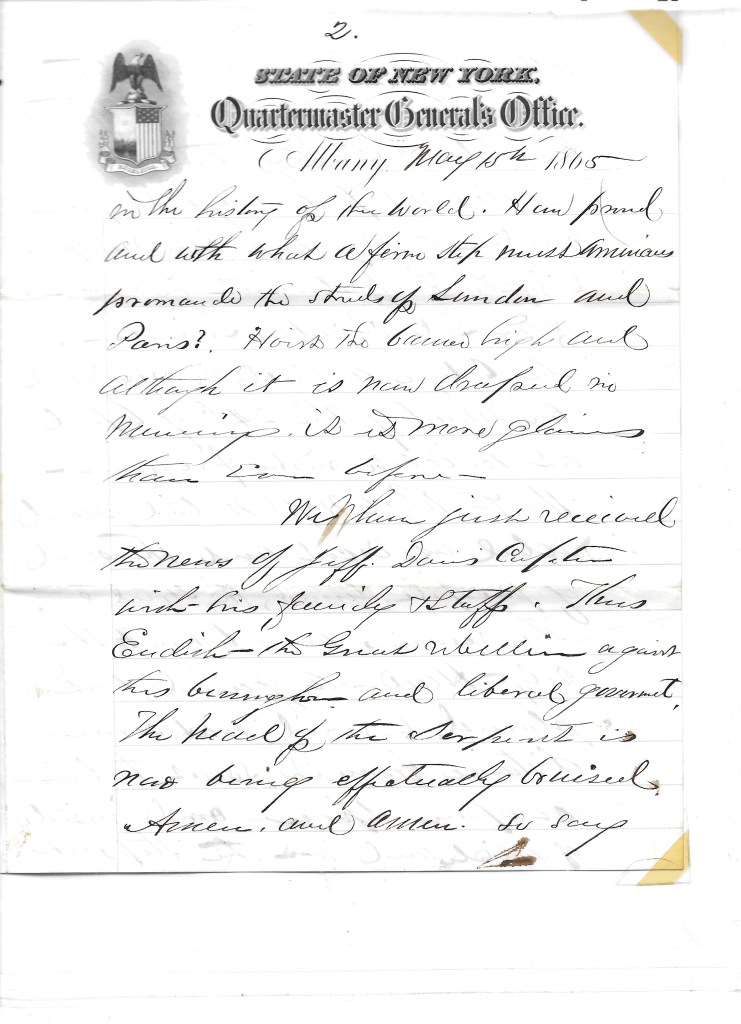 2.
STATE OF NEW YORK,
Quartermaster General's Office.
Albany May 15th 1865
in the history of the world. How proud
and with what a firm step must Americans
promanade the streets of London and
Paris?. Hoist the banner high and
although it is now draped in
mourning. it is more glorious
than Ever before—
We have just received
the news of Jeff. Davis Capture
with his family & Staff. Thus
Endeth the Great rebellion against
this and liberal government.
The head of the Serpent is
now being effectually bruised.
Amen. and amen. So say